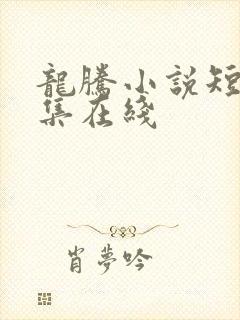 龍騰小説短
集在綫
肖夢吟